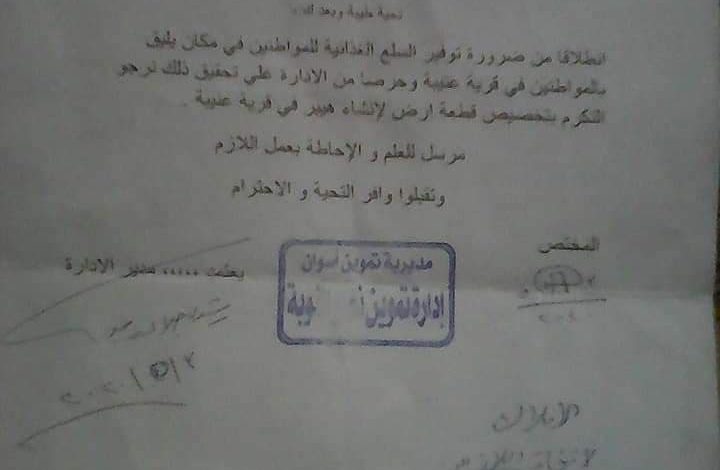 تحية طيبة وبعد
انطلاقا من ضرورة توفير السلع الغذائية للمواطنين في مكان يليق
بالمواطنين في قرية عنيبة وحرصا من الادارة علي تحقيق ذلك نرجو
التكرم بتخصيص قطعة ارض لإنشاء هيبر في قرية عنيبة .
مرسل للعلم و الإحاطة بعمل اللازم
وتفبلوا وافر التحية و الاحترام
المختص
يعتمد ..... مدير الادارة
مديرية تموين أسوان
إدارة تموين
٢٠٢٠/٥/٣
الأملاك